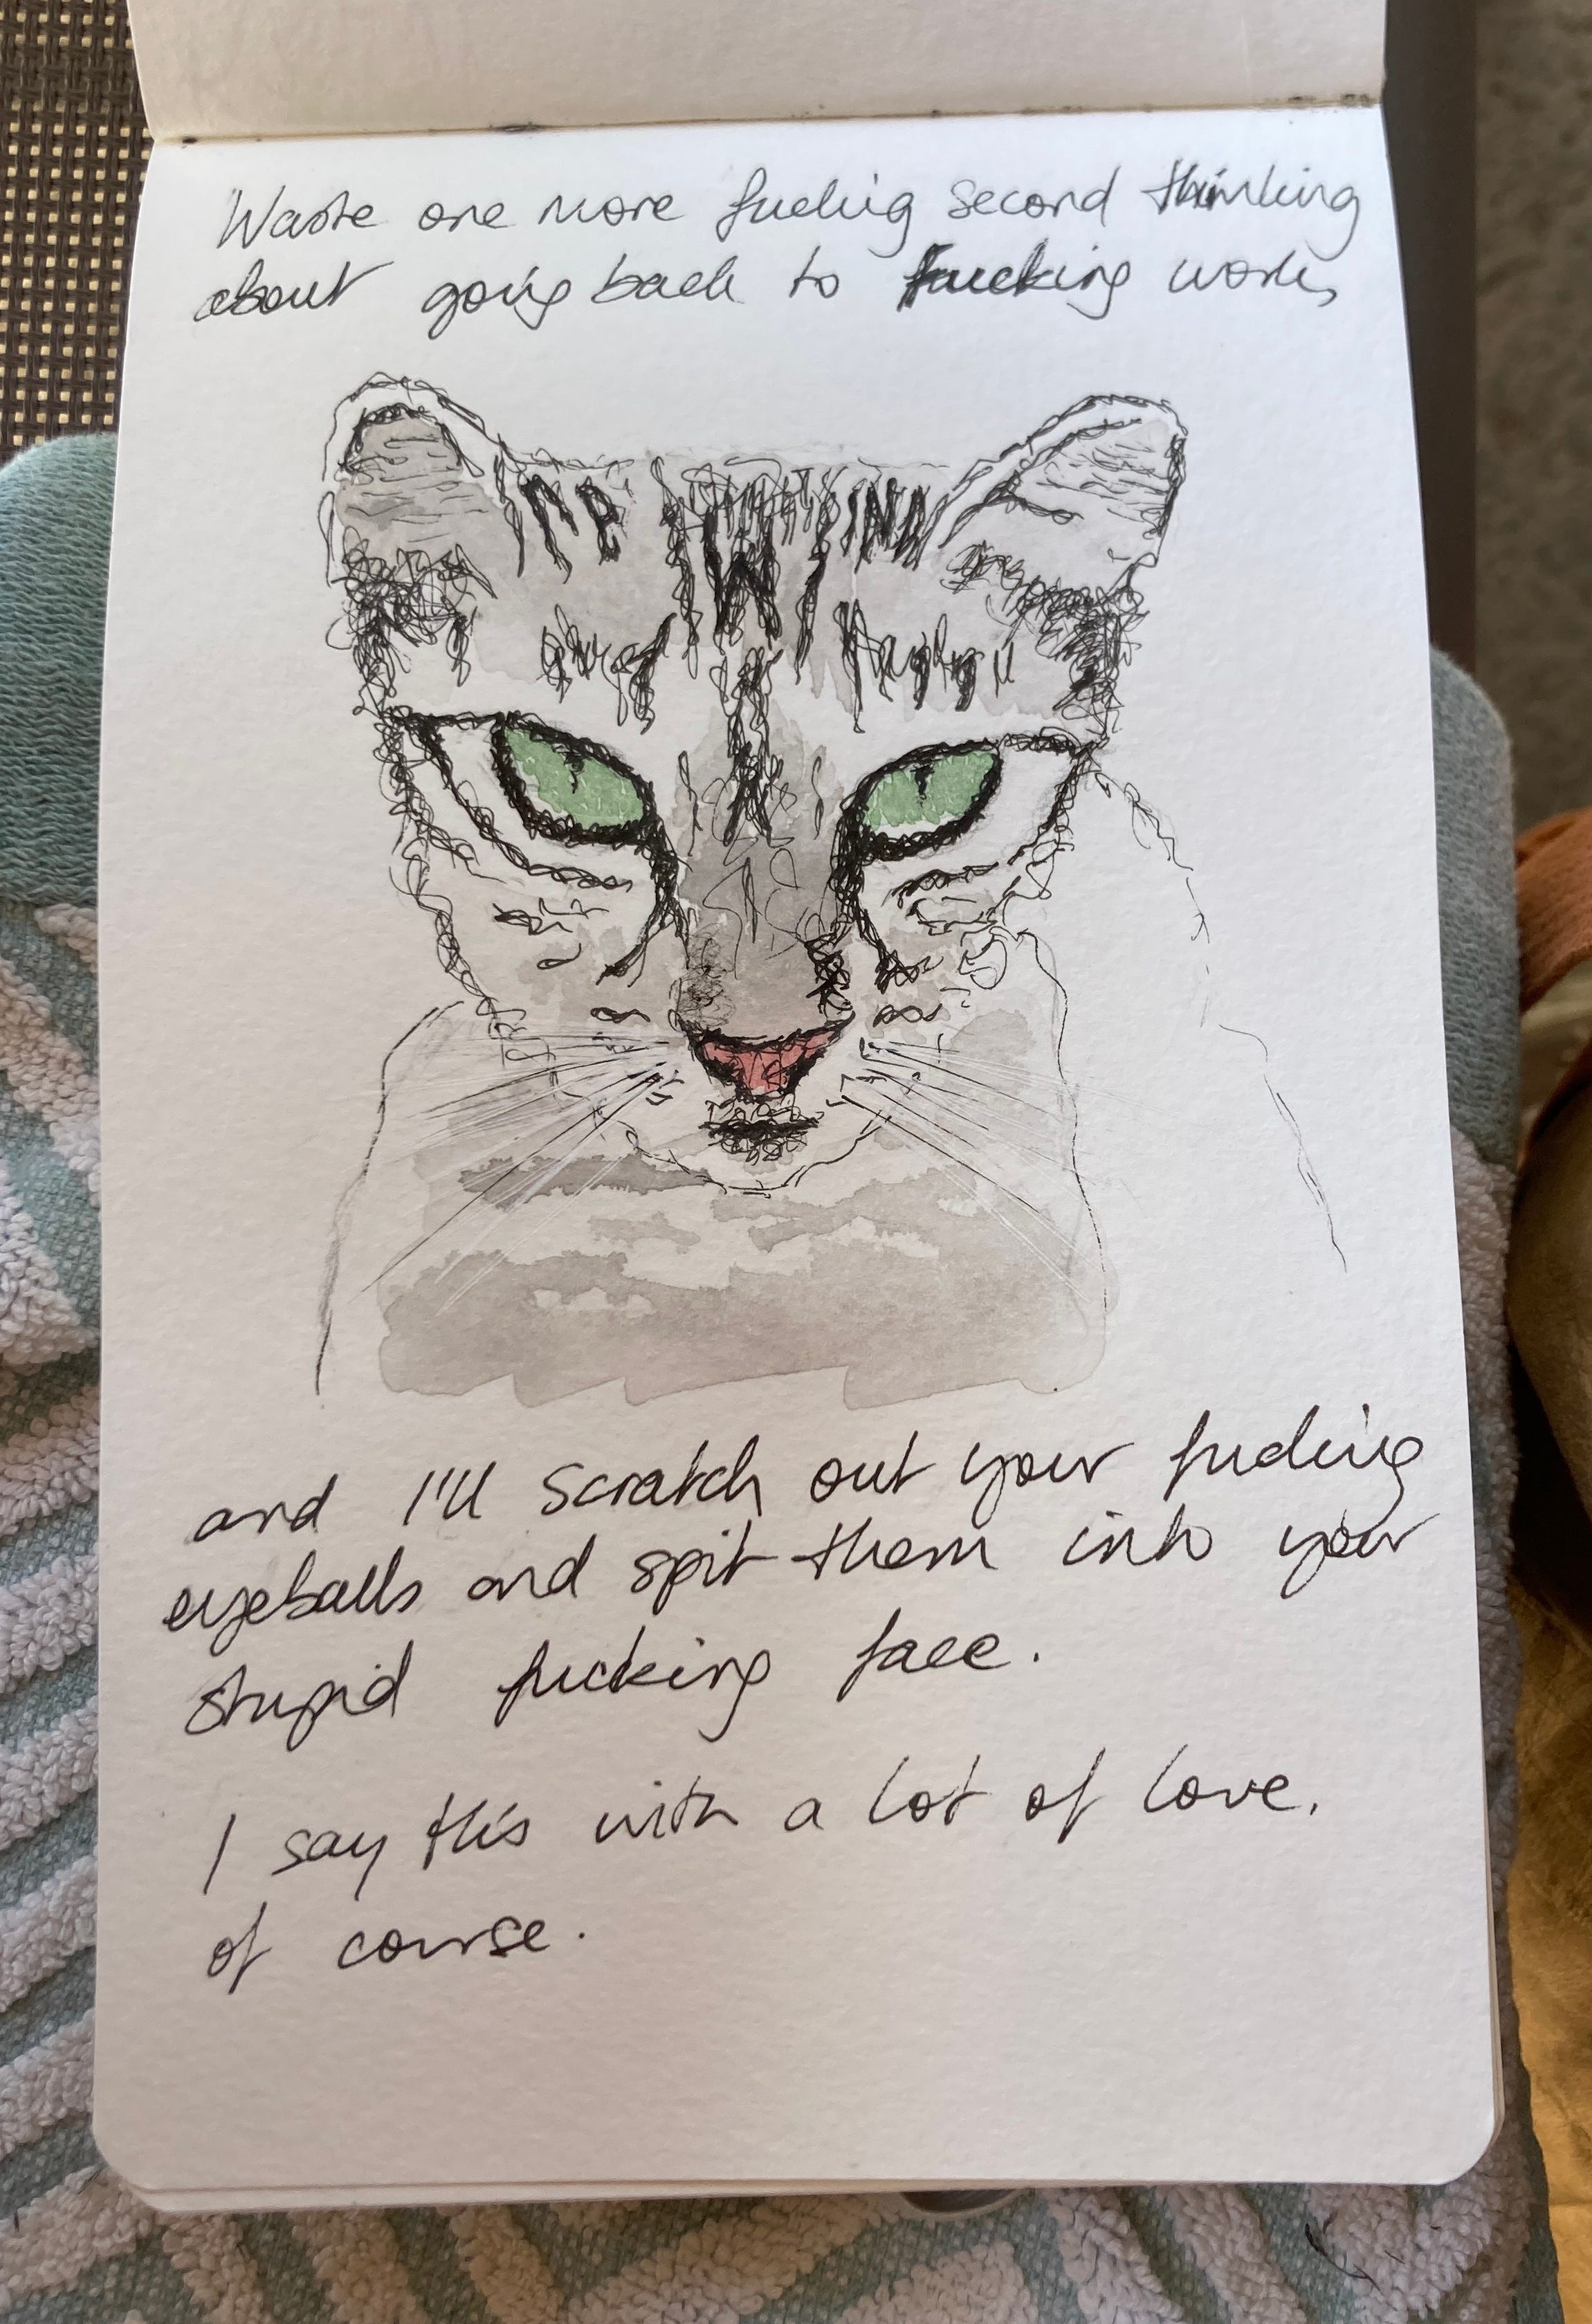 Waste one more fucking second thinking
about going back to fucking work,
and I'll scratch out your fucking
eyeballs and spit them into your
stupid fucking face.
I say this with a lot of love.
of course.